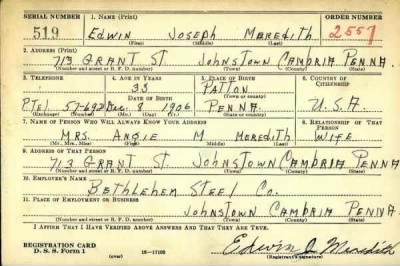 SERIAL NUMBER 1. NAME (Print) ORDER NUMBER
519 EDWIN JOSEPH MEREDITH 2557
(First) (Middle) (Last)
2. ADDRESS (Print)
713 GRANT ST JOHNSTOWN CAMBRIA PENNA.
(Number and street or R. F. D. number) (Town) (County) (State)
3. TELEPHONE 4. AGE IN YEARS 5. PLACE OF BIRTH 6. COUNTRY OF CITIZENSHIP
33 PATTON
DATE OF BIRTH
57-692 Dec. 8 1906 PENNA. U.S.A.
(Exchange) (Number) (Mo.) (Day) (Yr.) (State or country)
7. NAME OF PERSON WHO WILL ALWAYS KNOW YOUR ADDRESS 8. RELATIONSHIP OF THAT PERSON
MRS. ANGIE M MEREDITH WIFE
(Mr., Mrs., Miss) (First) (Middle) (Last)
9. ADDRESS OF THAT PERSON
713 GRANT ST JOHNSTOWN CAMBRIA PENNA
(Number and street or R. F. D. number) (Town) (County) (State)
10. EMPLOYER'S NAME
BETHLEHEM STEEL CO.
11. PLACE OF EMPLOYMENT OR BUSINESS
JOHNSTOWN CAMBRIA PENNA.
(Number and street or R. F. D. number) (Town) (County) (State)
I AFFIRM THAT I HAVE VERIFIED ABOVE ANSWERS AND THAT THEY ARE TRUE.
REGISTRATION CARD
D. S. S. Form 1 (over) 16-17105 Edwin J. Meredith
(Registrant's signature)